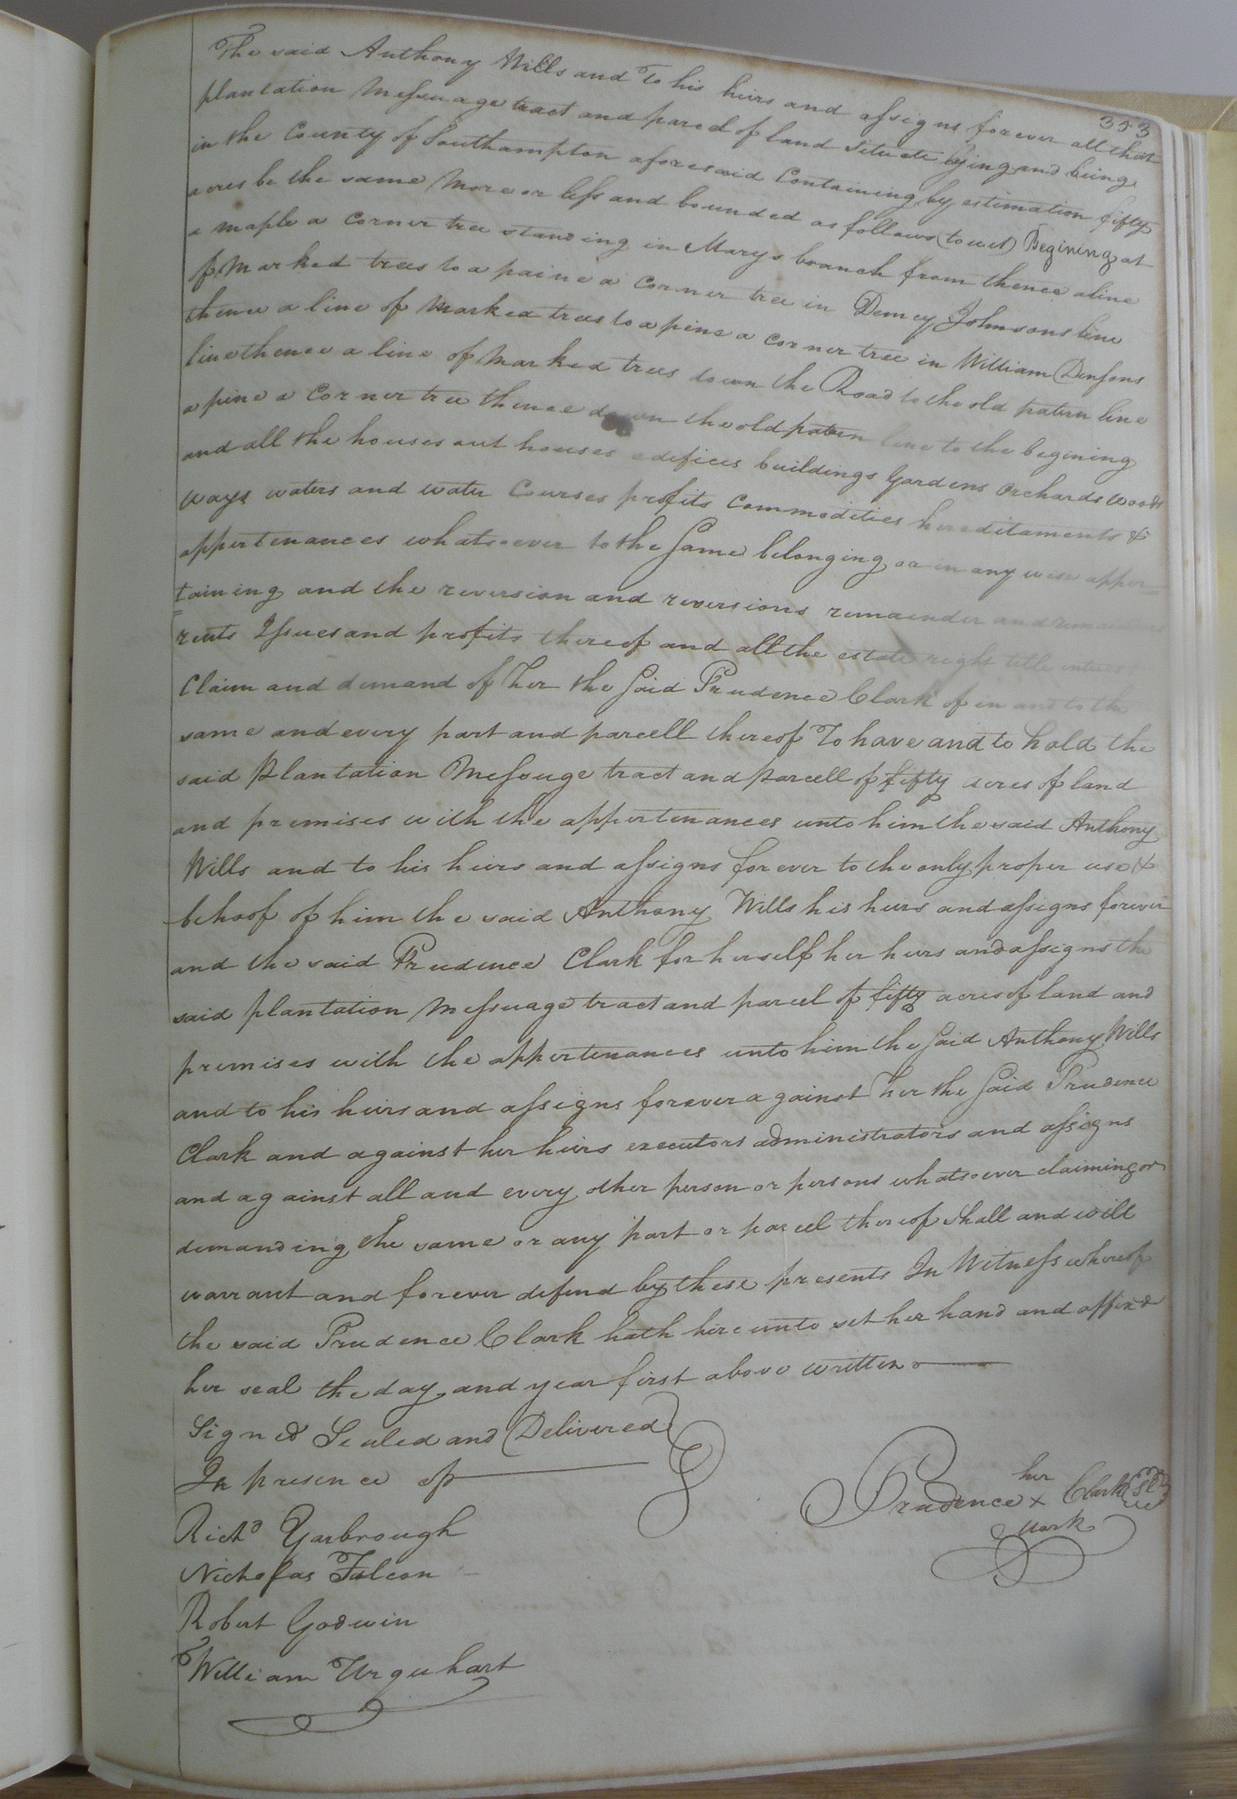 353
The said Anthony Wills and To his heirs and assigns forever all that
plantation Messuage tract and parcel of land Situate lying and being
in the County of Southampton aforesaid Containing by estimation fifty
acres be the same More or less and bounded as follows (to wit) Begining at
a maple a corner tree standing in Marys branch from thence a line
of Marked trees to a paine a corner tree in Demcy Johnsons line
thence a line of Marked trees to a pine a corner tree in William Densons
line thence a line of Marked trees down the Road to the old patern line
a pine a corner tree thence down the old patern line to the begining
and all the houses out houses edifices buildings Gardens Orchards woods
ways waters and water Courses profits commodities hereditaments &
appertenances whatsoever to the Same belonging or in any wise apper
taining and the reversion and reversions remainder and remainders
rents Issues and profits thereof and all the estate right title interest
Claim and demand of her the Said Prudence Clark of in and to the
same and every part and parcell thereof To have and to hold the
said Plantation Messouge tract and parcell of fifty acres of land
and premises with the appertenances unto him the said Anthony
Wills and to his heirs and assigns forever to the only proper use &
behoof of him the said Anthony Wills his heirs and assigns forever
and the said Prudence Clark for herself her heirs and assigns the
said plantation Messuage tract and parcel of fifty acres of land and
premises with the appertenances unto him the Said Anthony Wills
and to his heirs and assigns forever against her the Said Prudence
Clark and against her heirs executors administrators and assigns
and against all and every other person or persons whatsoever claiming or
demanding the same or any part or parcel thereof shall and will
warrant and forever defend by these presents In Witness whereof
the said Prudence Clark hath hereunto set her hand and affix'd
her seal the day and year first above written
Signed Sealed and Delivered
In presence of
her
Prudence x Clark (Sl)
Mark
Richd Yarbrough
Nicholas Falcon
Robert Godwin
William Urquhart